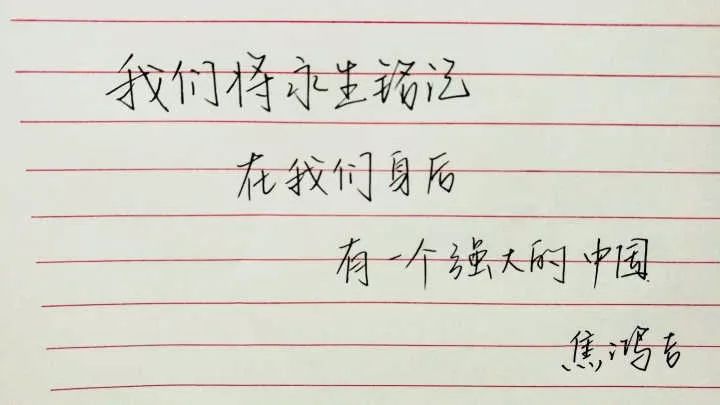 我们将永生铭记
在我们身后
有一个强大的中国
焦鸿吉